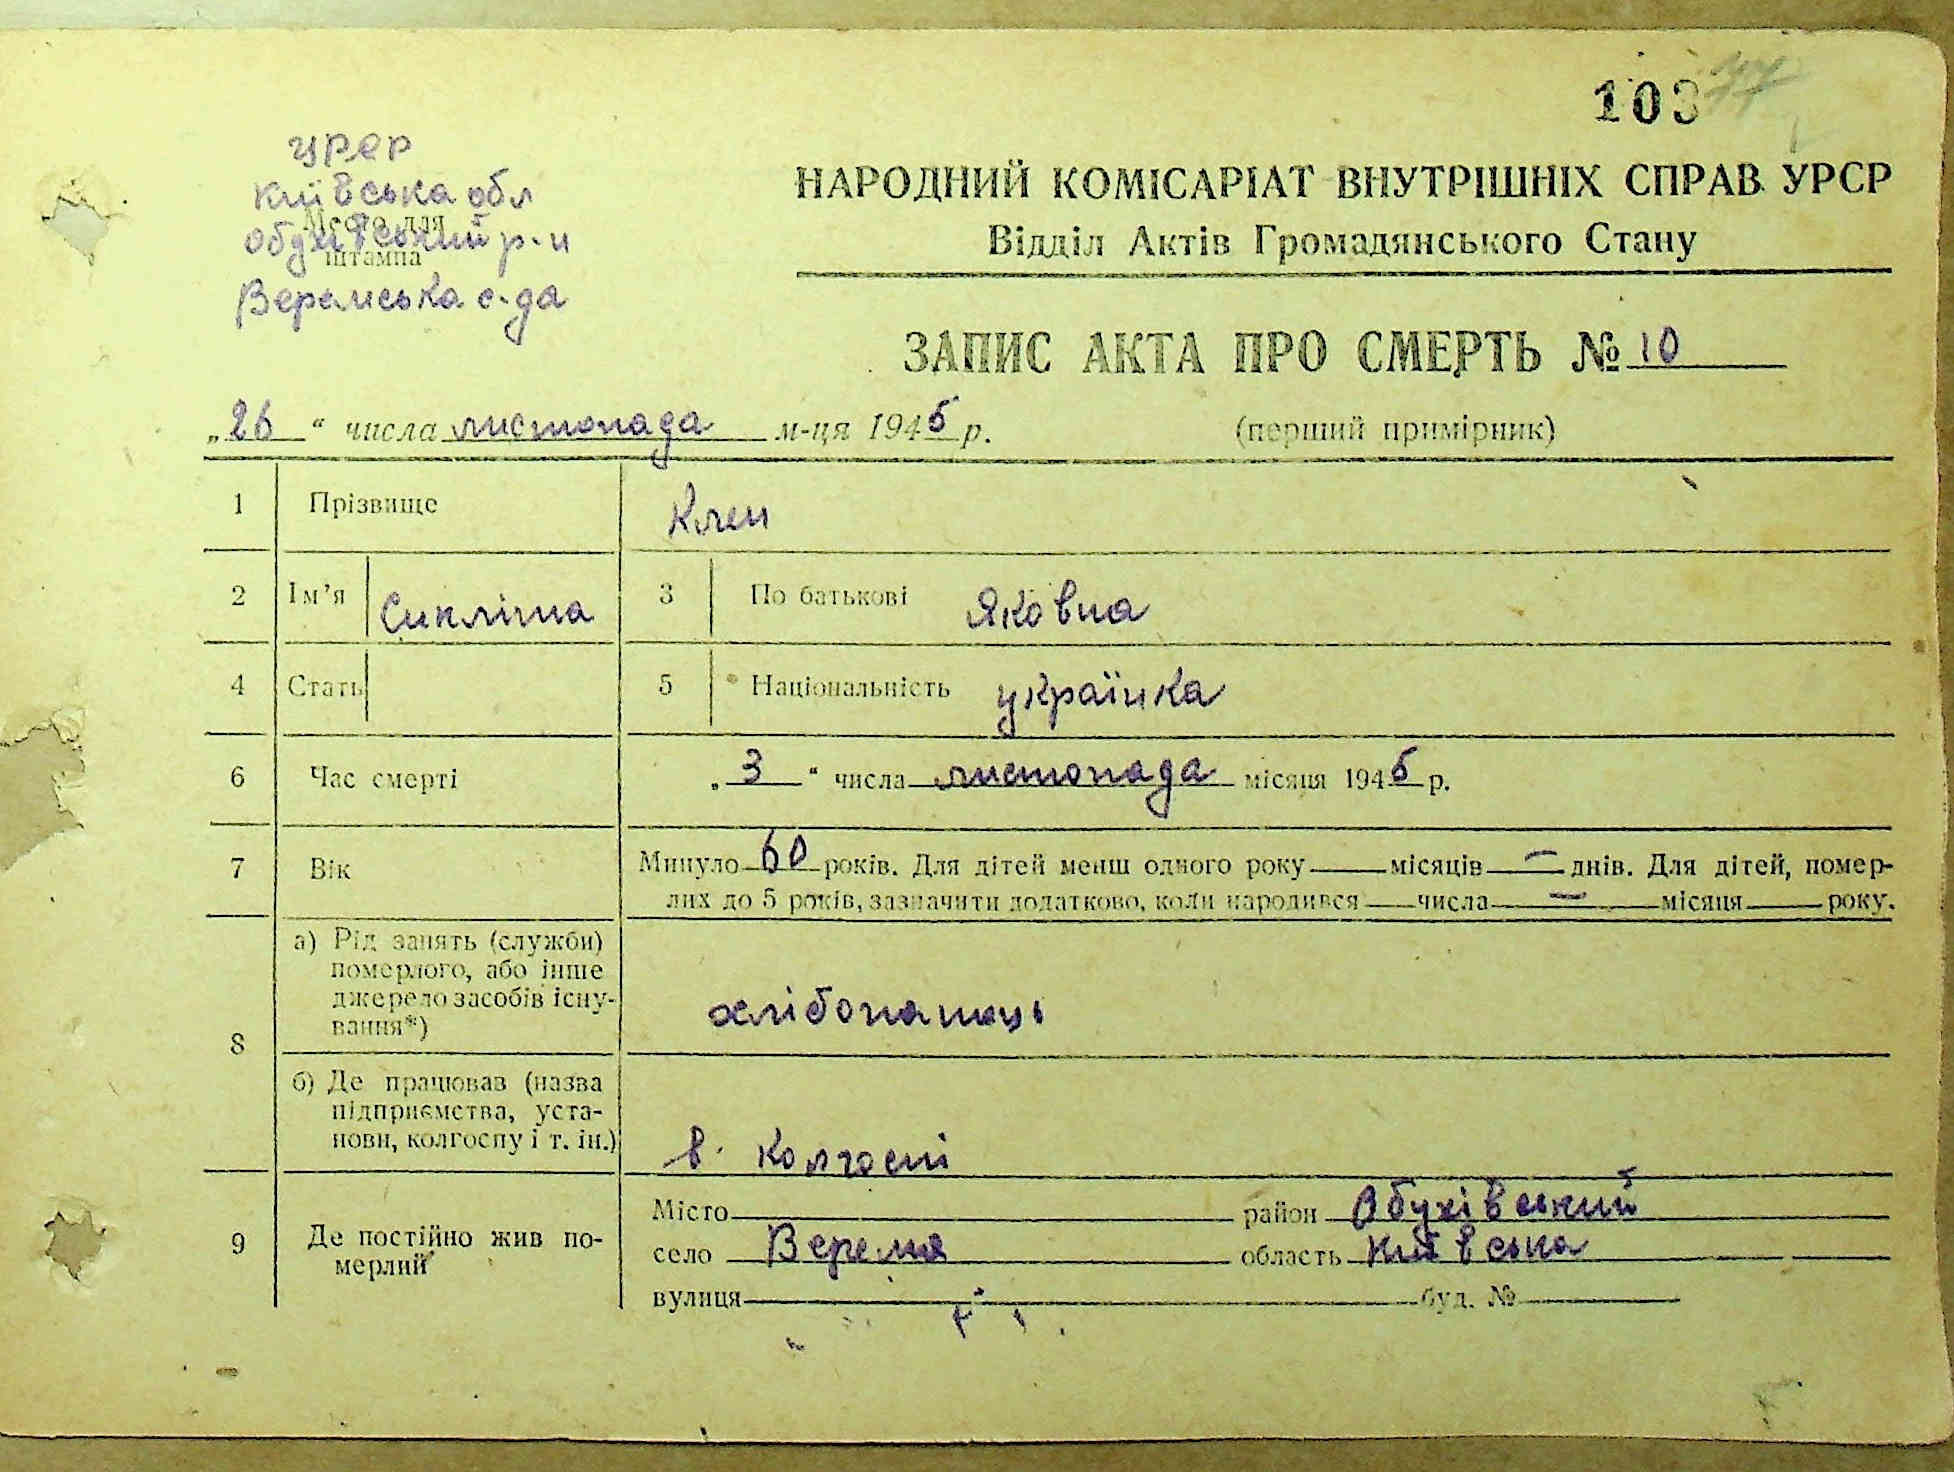 103
УРСР
Київська обл
Обухівський р-н
Веремська с-да
Место для
штампа
НАРОДНИЙ КОМІСАРІАТ ВНУТРІШНІХ СПРАВ УРСР
Відділ Актів Громадянського Стану
ЗАПИС АКТА ПРО СМЕРТЬ № 10
„26“ числа листопада м-ця 1945 р. (перший примірник)
1 Прізвище Клен
2 Ім’я Сикліта 3 По батькові Яковна
4 Стать 5 Національність українка
6 Час смерті „3“ числа листопада місяця 1945 р.
7 Вік Минуло 60 років. Для дітей менш одного року — місяців — днів. Для дітей, помер-
лих до 5 років, зазначити додатково, коли народився — числа — місяця — року.
8 а) Рід занять (служби)
померлого, або інше
джерело засобів існу-
вання*)
хлібопашць
б) Де працював (назва
підприємства, уста-
нови, колгоспу і т. ін.)
в. колгоспі
9 Де постійно жив по-
мерлий
Місто район Обухівський
село Веремя область Київська
вулиця буд. №